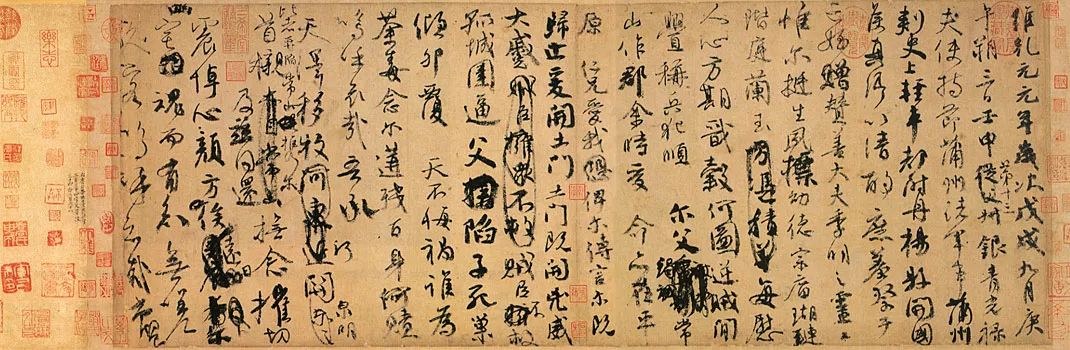 維乾元元年歲次戊戌九月庚
午朔三日壬申第十三叔銀青光祿
夫使持節蒲州諸軍事蒲州
刺史上輕車都尉丹楊縣開國
侯真卿以清酌庶羞祭于
亡姪贈贊善大夫季明之靈曰
惟爾挺生夙標幼德宗廟瑚璉
階庭蘭玉方憑積善每慰
人心方期戩穀何圖逆賊間
釁稱兵犯順爾父竭誠常
山作郡余時受命亦在平
原仁兄愛我俾爾傳言爾既
歸止爰開土門土門既開凶威
大蹙賊臣擁衆不救賊臣不救
孤城圍逼父陷子死巢
傾卵覆天不悔禍誰為
荼毒念爾遘殘百身何贖
嗚乎哀哉吾承
天澤移牧河關泉明
比者再陷常山攜爾
首櫬及茲同還撫念摧切
震悼心顏方俟遠日
卜爾幽宅魂而有知無嗟
久客嗚呼哀哉尚饗